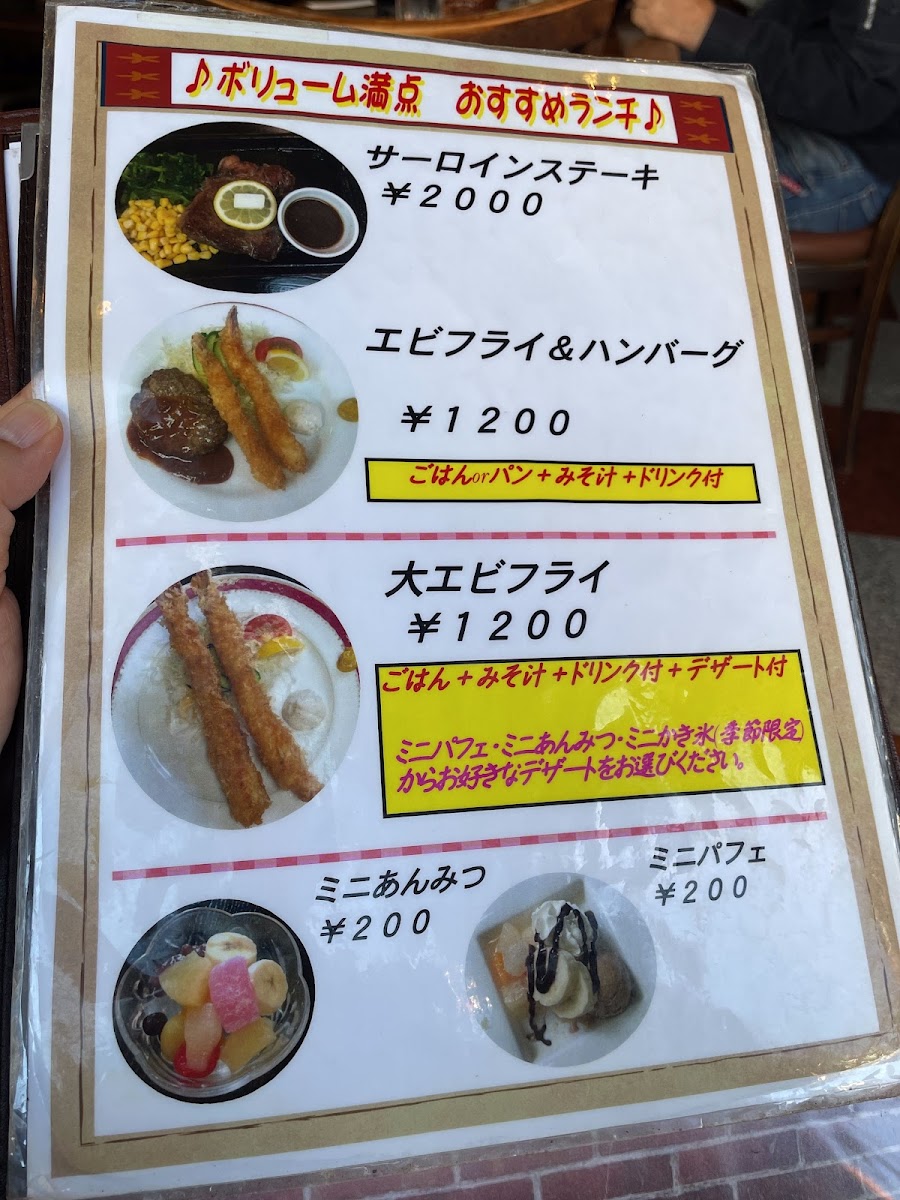 ♪ボリューム満点　おすすめランチ♪
サーロインステーキ
￥２０００
エビフライ＆ハンバーグ
￥１２００
ごはんorパン＋みそ汁＋ドリンク付
大エビフライ
￥１２００
ごはん＋みそ汁＋ドリンク付＋デザート付
ミニパフェ・ミニあんみつ・ミニかき氷(季節限定)
からお好きなデザートをお選びください。
ミニあんみつ
￥２００
ミニパフェ
￥２００